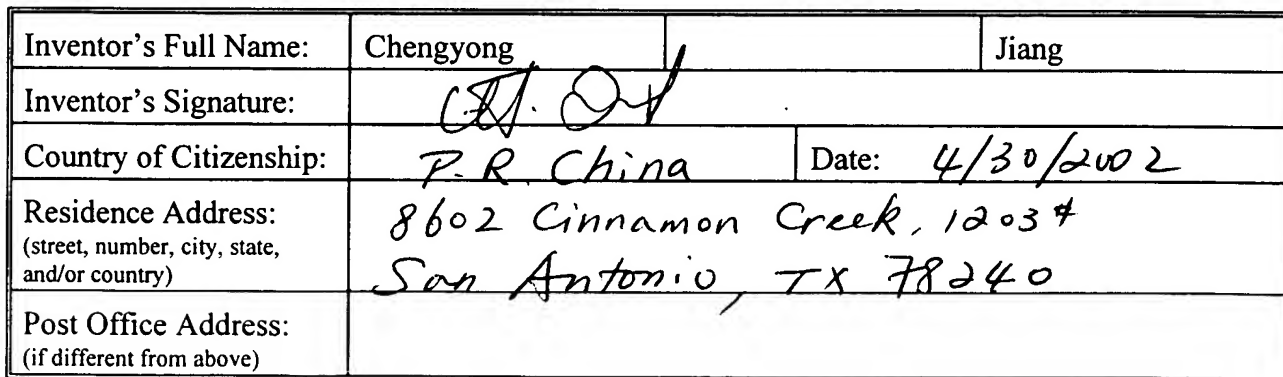 Inventor's Full Name: Chengyong Jiang
Inventor's Signature:
Country of Citizenship: P.R. China Date: 4/30/2002
Residence Address:
(street, number, city, state,
and/or country)
8602 Cinnamon Creek, 1203#
San Antonio, TX 78240
Post Office Address:
(if different from above)